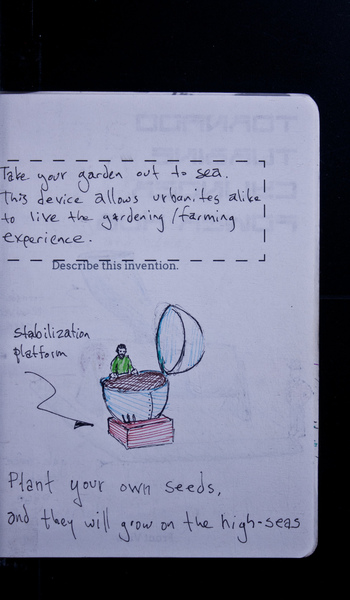 Take your garden out to sea.
This device allows urbanites alike
to live the gardening/farming
experience.
Describe this invention.
stabilization
platform
Plant your own seeds,
and they will grow on the high-seas